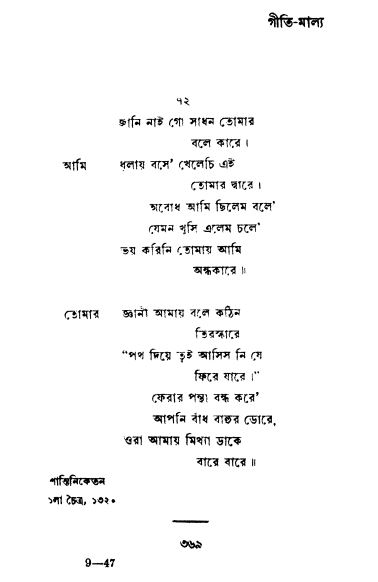 গীতি-মাল্য
৭২
জানি নাই গো সাধন তোমার
বলে কারে।
আমি ধূলায় বসে' খেলেচি এই
তোমার দ্বারে।
অবোধ আমি ছিলেম বলে'
যেমন খুসি এলেম চলে'
ভয় করিনি তোমায় আমি
অন্ধকারে॥
তোমার জ্ঞানী আমায় বলে কঠিন
তিরস্কারে
“পথ দিয়ে তুই আসিস নি যে
ফিরে যারে।”
ফেরার পন্থা বন্ধ করে'
আপনি বাঁধ বাহুর ডোরে,
ওরা আমায় মিথ্যা ডাকে
বারে বারে॥
শান্তিনিকেতন
১লা চৈত্র, ১৩২০
৩৬৯
9—47